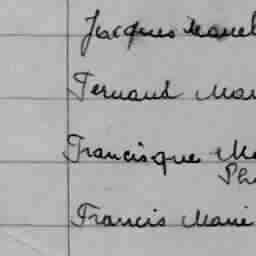 Jacques Marcel
Fernand Mar
Francisque Ma
Ph
Francis Marie